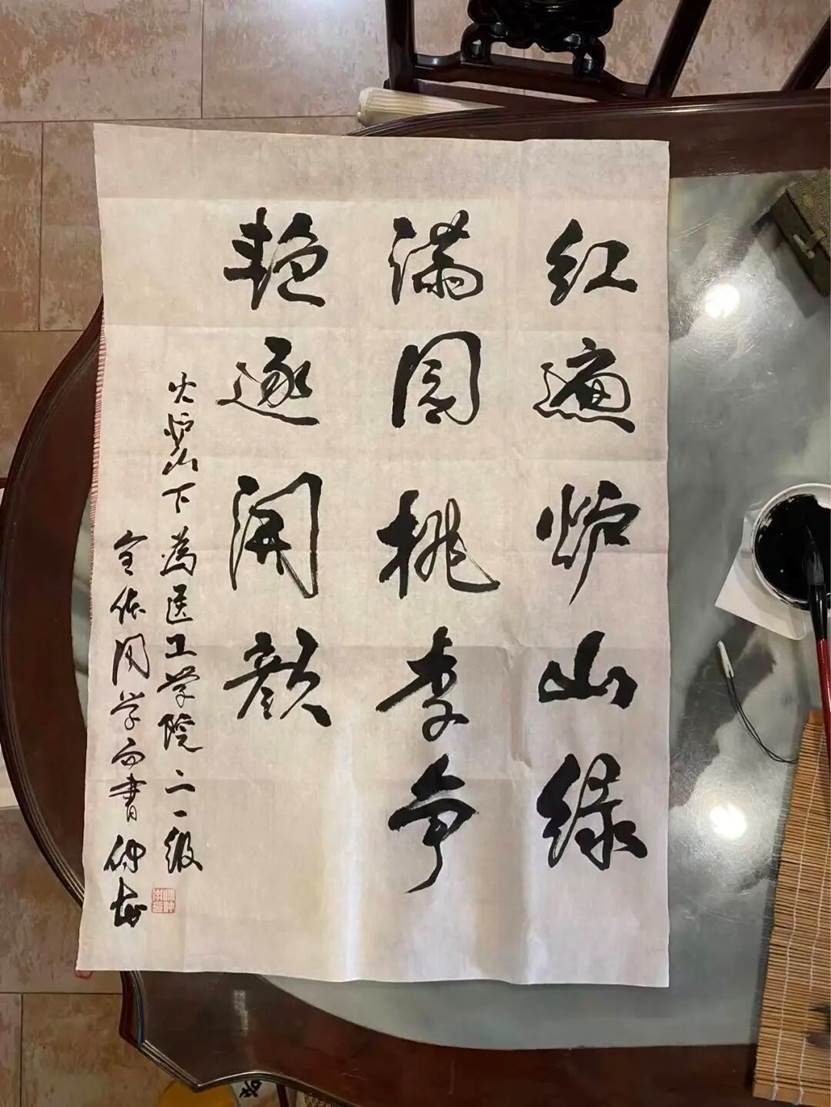 红遍炉山绿
满园桃李争
艳逐开颜
火炉山下为医工学院二一级
全体同学而书